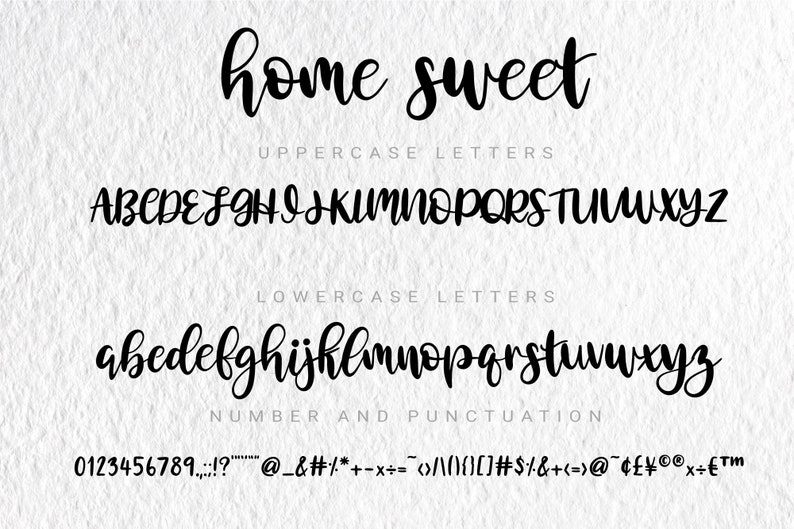 home sweet
UPPERCASE LETTERS
ABCDEFGHIJKLMNOPQRSTUVWXYZ
LOWERCASE LETTERS
abcdefghijklmnopqrstuvwxyz
NUMBER AND PUNCTUATION
0123456789.,:;!?'"""@_&#%*+-x÷=~<>/\(){}[]#$%&+<=>@~¢£¥©®x÷€™